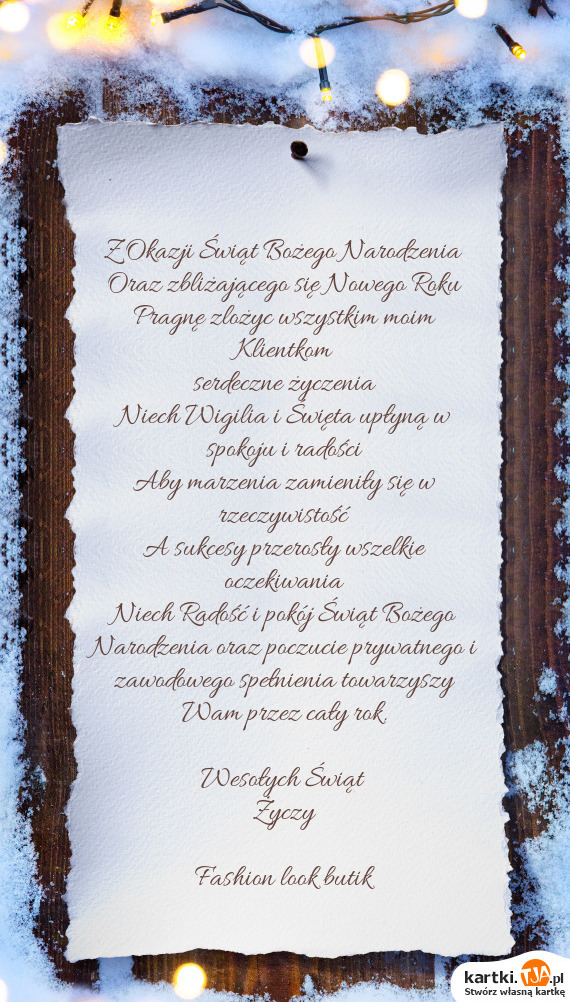 Z Okazji Świąt Bożego Narodzenia
Oraz zbliżającego się Nowego Roku
Pragnę zlożyc wszystkim moim
Klientkom
serdeczne życzenia
Niech Wigilia i Święta upłyną w
spokoju i radości
Aby marzenia zamieniły się w
rzeczywistość
A sukcesy przerosły wszelkie
oczekiwania
Niech Radość i pokój Świąt Bożego
Narodzenia oraz poczucie prywatnego i
zawodowego spełnienia towarzyszy
Wam przez cały rok.
Wesołych Świąt
Życzy
Fashion look butik
kartki.TJA.pl
Stwórz własną kartkę